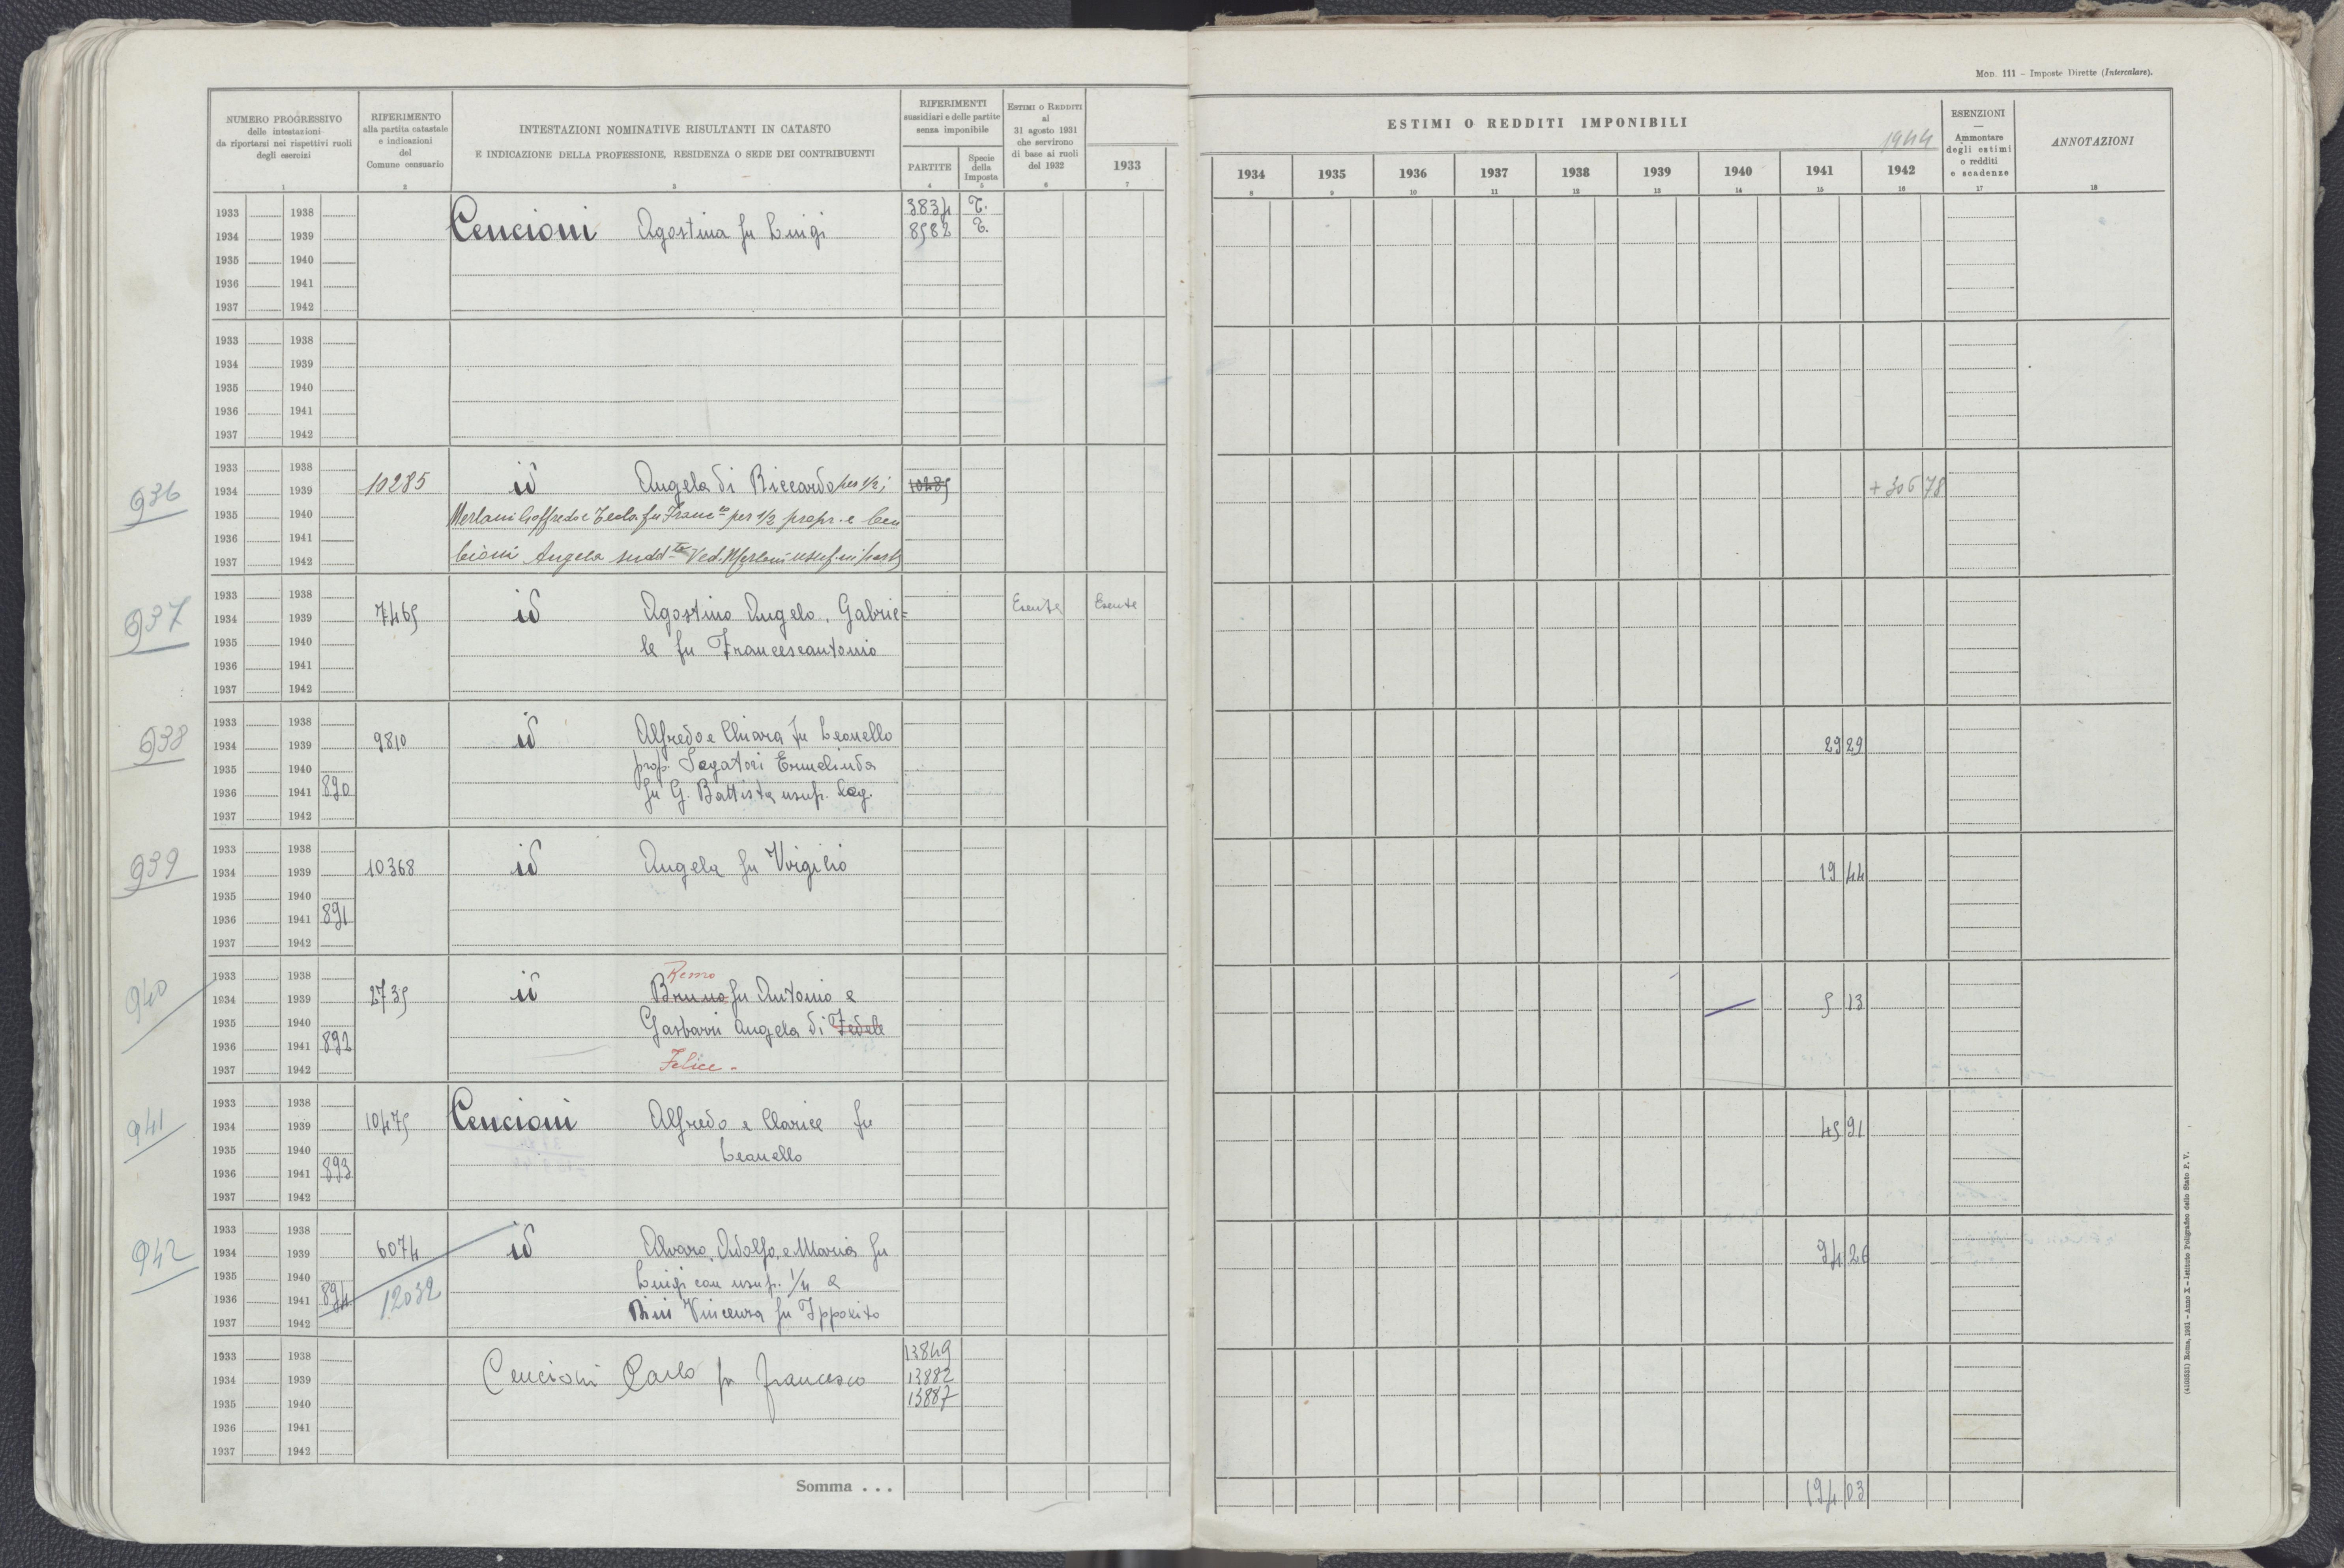 MOD. 111 – Imposte Dirette (Intercalare).
NUMERO PROGRESSIVO
delle intestazioni
da riportarsi nei rispettivi ruoli
degli esercizi
1
RIFERIMENTO
alla partita catastale
e indicazioni
del
Comune censuario
2
INTESTAZIONI NOMINATIVE RISULTANTI IN CATASTO
E INDICAZIONE DELLA PROFESSIONE, RESIDENZA O SEDE DEI CONTRIBUENTI
3
RIFERIMENTI
sussidiari e delle partite
senza imponibile
PARTITE
4
Specie
della
Imposta
5
ESTIMI O REDDITI
al
31 agosto 1931
che servirono
di base ai ruoli
del 1932
6
1933
7
ESTIMI O REDDITI IMPONIBILI
1944
1934 1935 1936 1937 1938 1939 1940 1941 1942
8 9 10 11 12 13 14 15 16
ESENZIONI
Ammontare
degli estimi
o redditi
e scadenze
17
ANNOTAZIONI
18
1933 1938 3834 T.
1934 1939 Cencioni Agostina fu Luigi 8982 T.
1935 1940
1936 1941
1937 1942
1933 1938
1934 1939
1935 1940
1936 1941
1937 1942
1933 1938
936 1934 1939 10285 id Angela di Riccardo per 1/2; 10285 + 306 78
1935 1940 Merlani Goffredo e Tecla fu Franc.co per 1/2 propr. e Cen
1936 1941
1937 1942 cioni Angela sudd.ta Ved. Merlani usuf. in parte
1933 1938
937 1934 1939 7465 id Agostino Angelo, Gabrie= Esente Esente
1935 1940 le fu Francescantonio
1936 1941
1937 1942
1933 1938
938 1934 1939 9810 id Alfredo e Chiara fu Leonello 29 29
1935 1940 prop. Segatori Ermelinda
1936 1941 890 fu G. Battista usuf. leg.
1937 1942
1933 1938
939 1934 1939 10368 id Angela fu Virgilio 19 44
1935 1940
1936 1941 891
1937 1942
1933 1938 Remo
940 1934 1939 2735 id Bruno fu Antonio e 5 13
1935 1940 Gasbarri Angela di Fedele
1936 1941 892
1937 1942 Felice -
1933 1938
941 1934 1939 10475 Cencioni Alfredo e Clarice fu 45 91
1935 1940 Leonello
1936 1941 893
1937 1942
1933 1938
942 1934 1939 6074 id Alvaro, Adolfo, e Maria fu 94 26
1935 1940 Luigi con usuf. 1/4 a
1936 1941 894 12032
1937 1942 Bini Vincenza fu Ippolito
1933 1938 13849
1934 1939 Cencioni Carlo fu Francesco 13882
1935 1940 13887
1936 1941
1937 1942
Somma . . . 194 03
(4100321) Roma, 1931 – Anno X – Istituto Poligrafico dello Stato P. V.